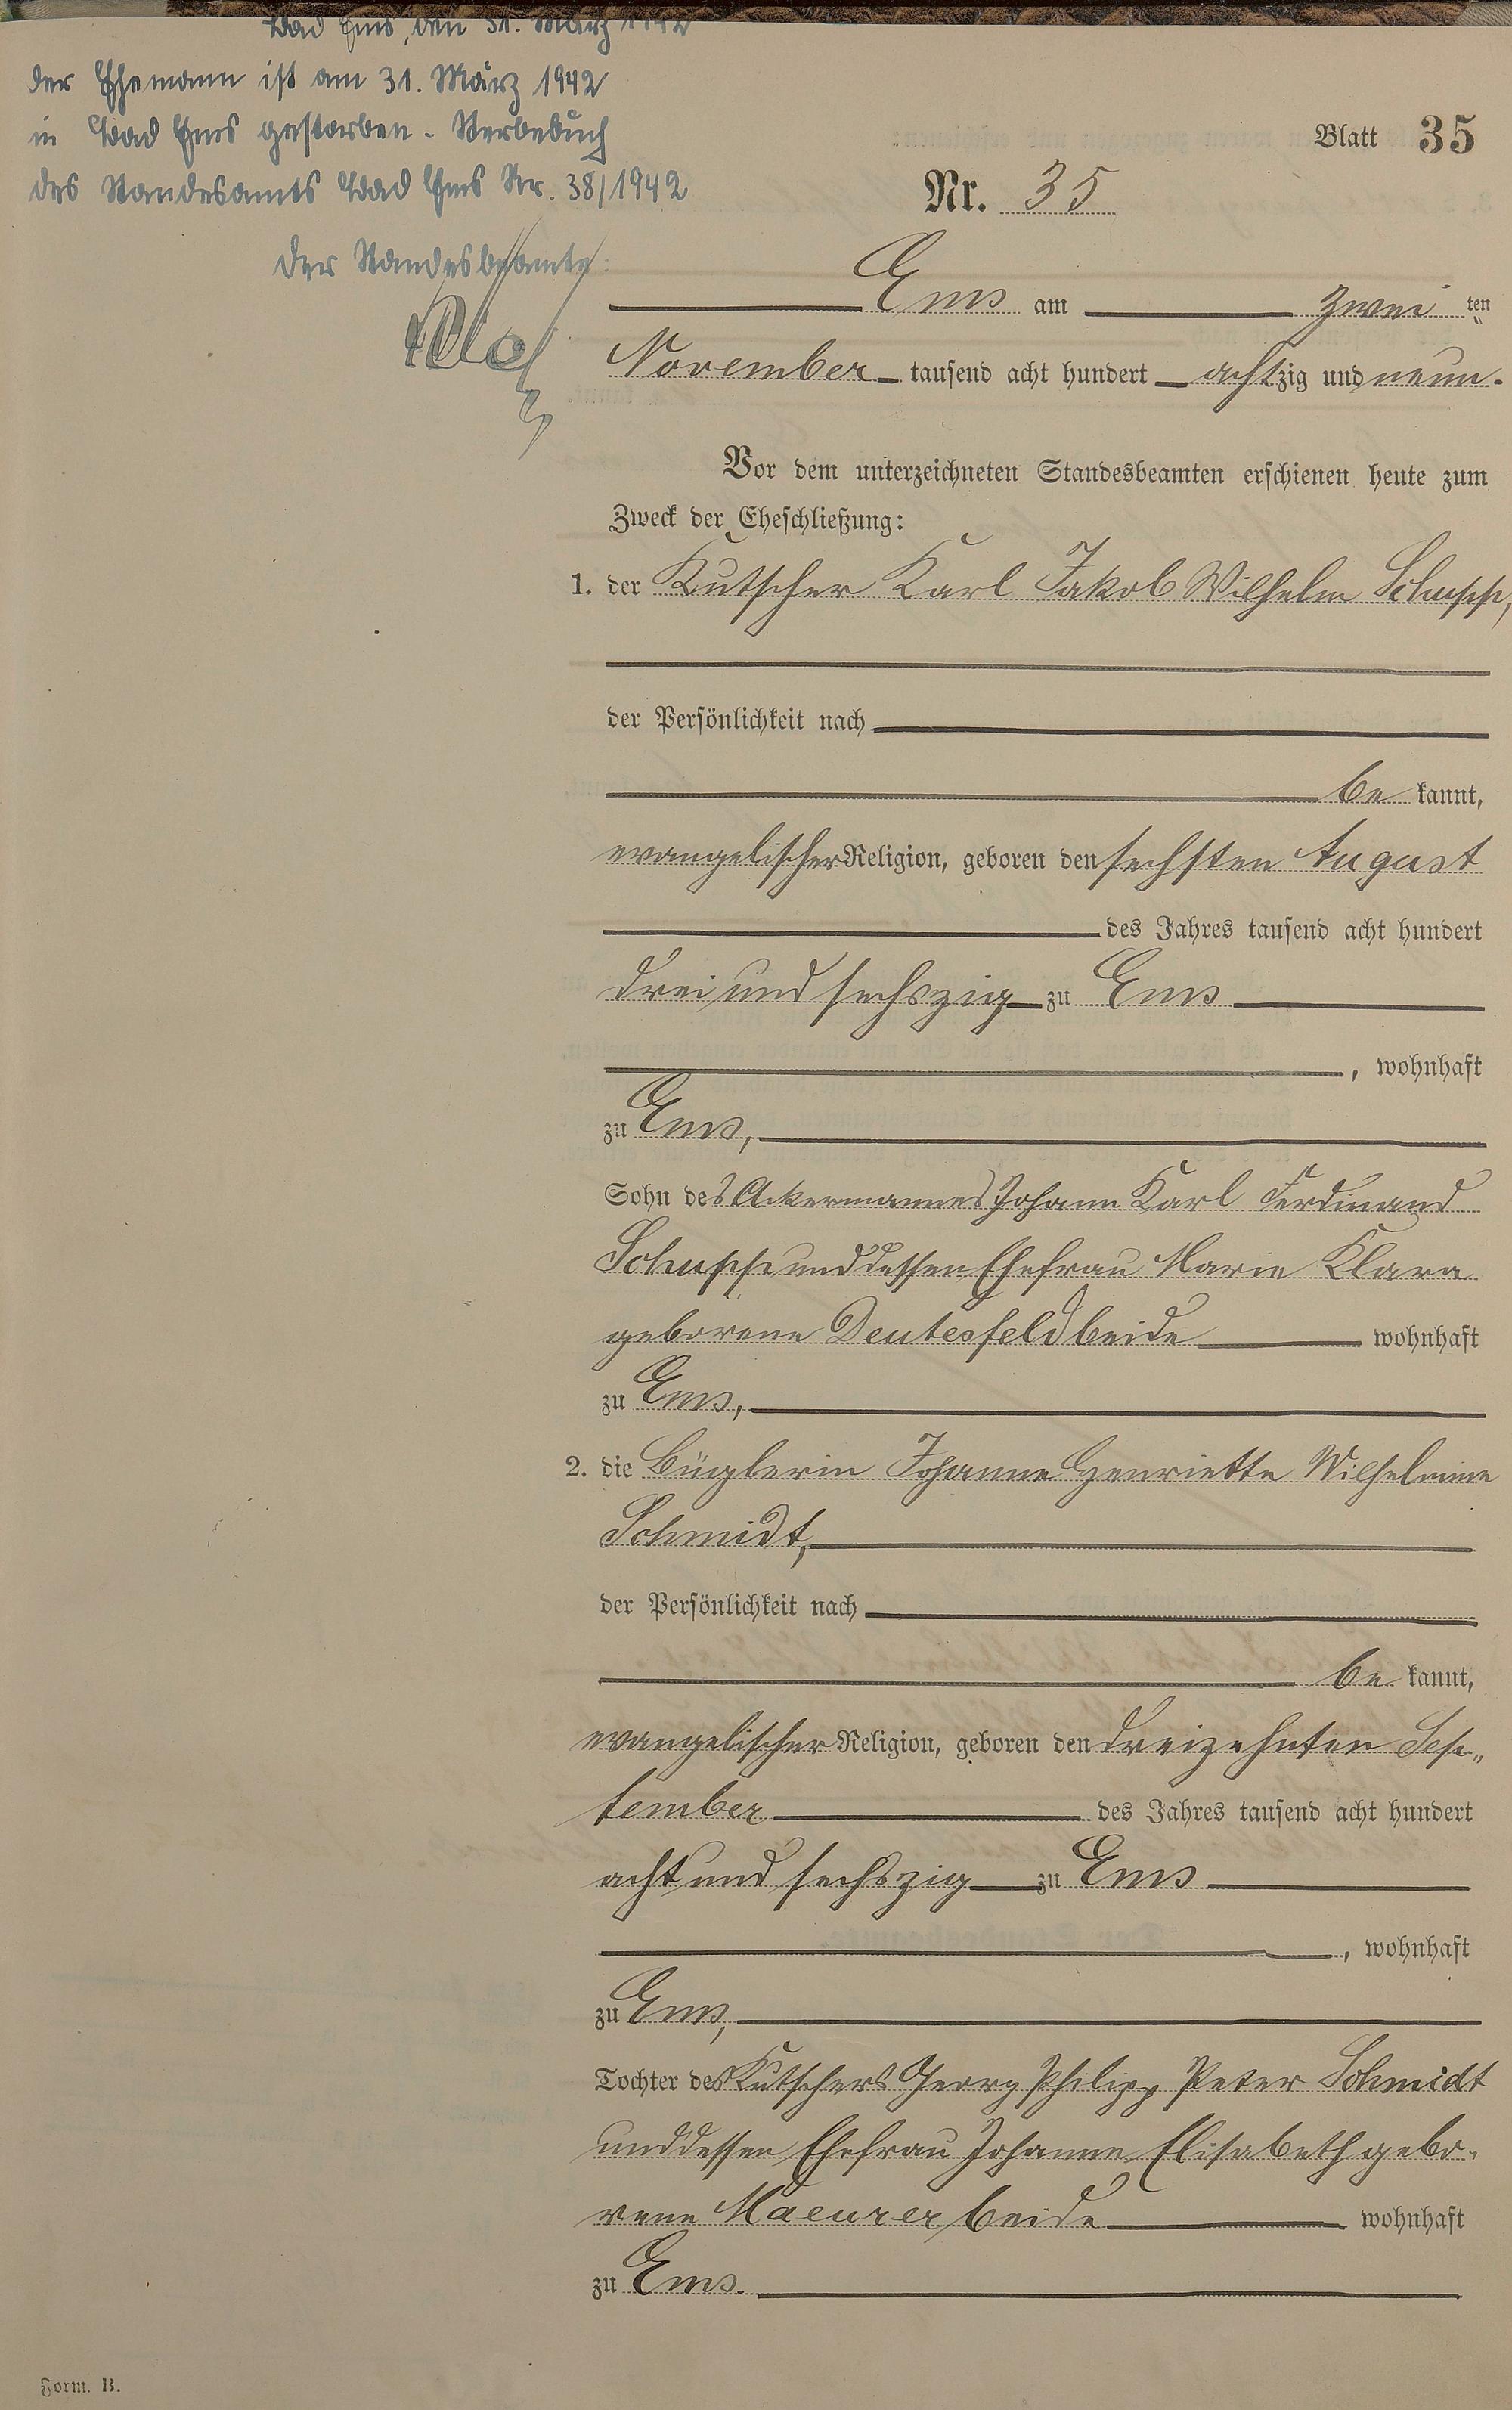 Bad Ems, den 31. März 1942
der Ehemann ist am 31. März 1942
in Bad Ems gestorben - Sterbebuch
des Standesamts Bad Ems Nr. 38/1942
Der Standesbeamte:
Blatt 35
Nr. 35
Ems am zwei ten
November tausend acht hundert achtzig und neun.
Vor dem unterzeichneten Standesbeamten erschienen heute zum
Zweck der Eheschließung:
1. der Kutscher Karl Jakob Wilhelm Schupp,
der Persönlichkeit nach
be kannt,
evangelischer Religion, geboren den sechsten August
des Jahres tausend acht hundert
drei und sechszig zu Ems
, wohnhaft
zu Ems,
Sohn des Ackermannes Johann Karl Ferdinand
Schupp und dessen Ehefrau Marie Klara
geborene Deutesfeld beide wohnhaft
zu Ems,
2. die Büglerin Johanne Henriette Wilhelmine
Schmidt,
der Persönlichkeit nach
be kannt,
evangelischer Religion, geboren den dreizehnten Sep„
tember des Jahres tausend acht hundert
acht und sechszig zu Ems
, wohnhaft
zu Ems,
Tochter des Kutschers Georg Philipp Peter Schmidt
und dessen Ehefrau Johanne Elisabeth gebo-
rene Maeurer beide wohnhaft
zu Ems.
Form. B.